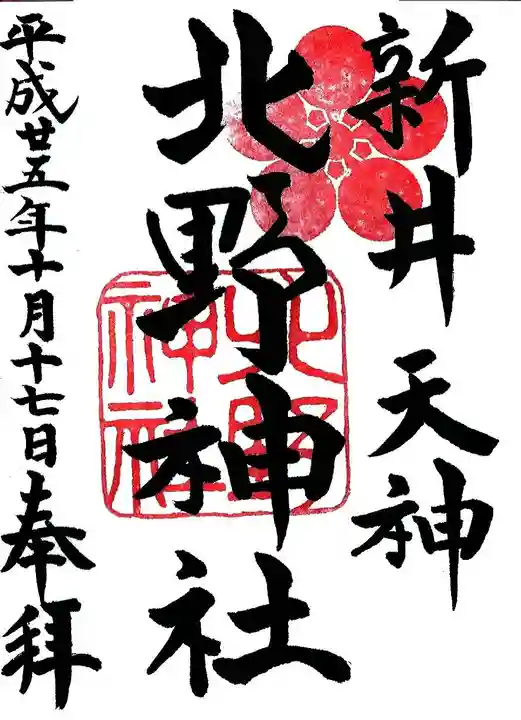 新井天神
北野神社
北野神社
平成廿五年十月十七日奉拝